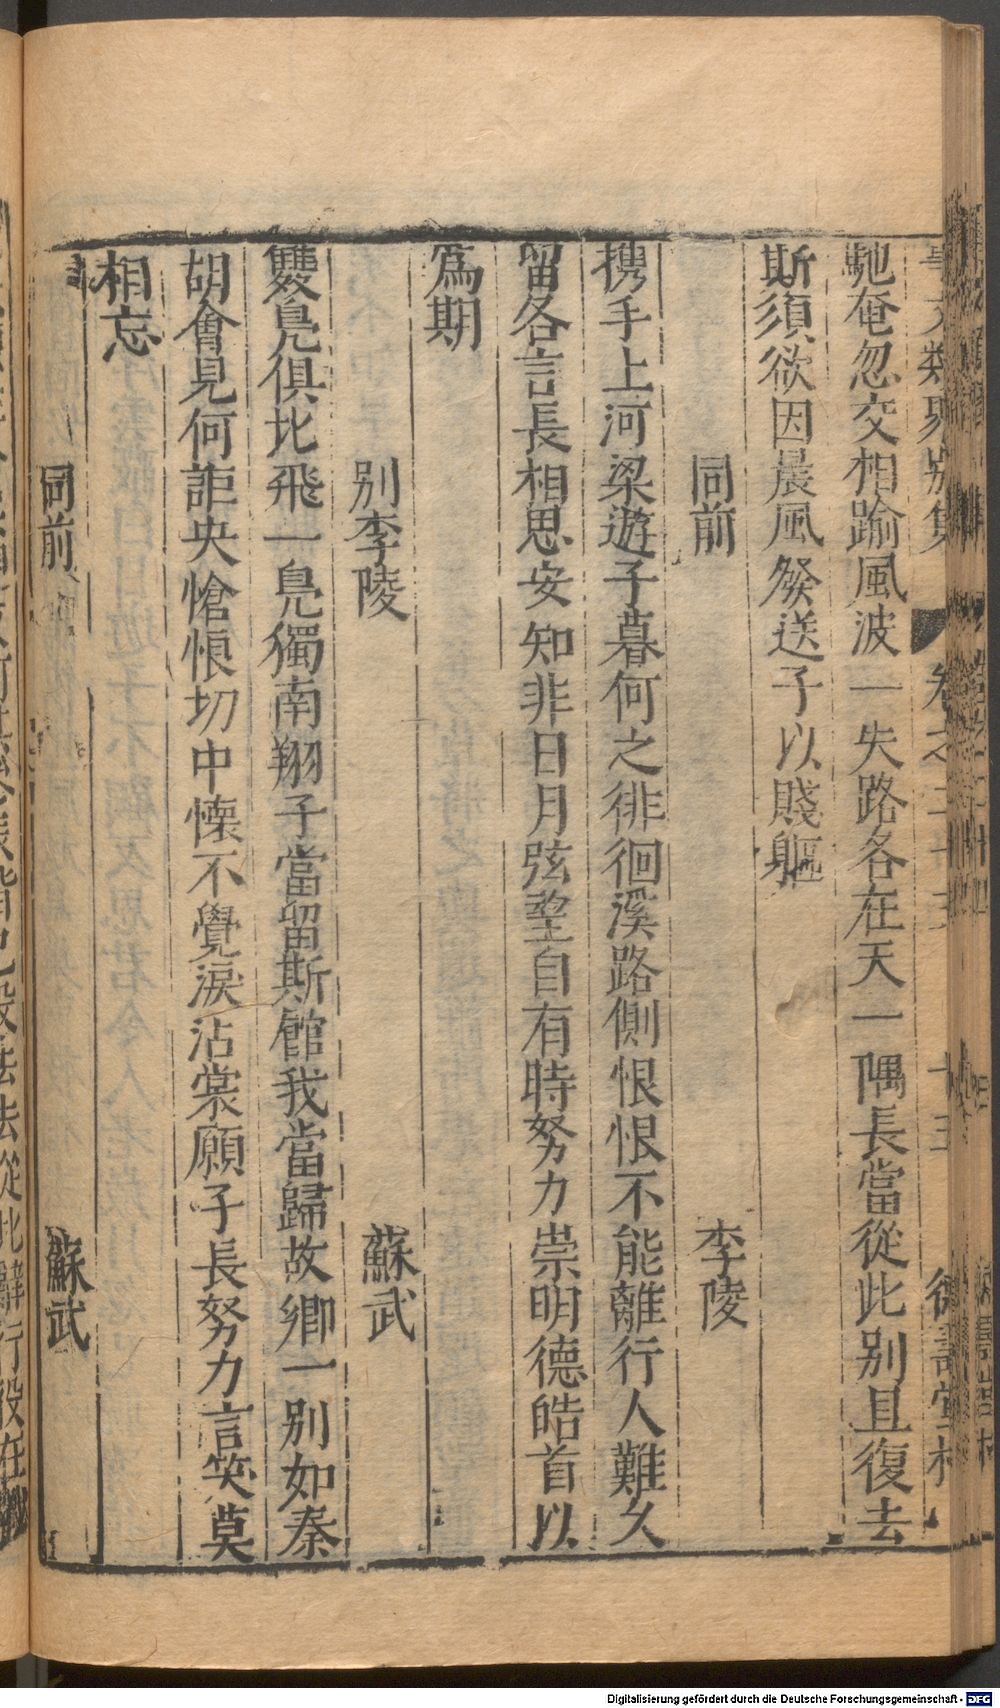 馳奄忽交相踰風波一失路各在天一隅長當從此别且復去
斯須欲因晨風發送子以賤軀
同前 李陵
携手上河梁遊子暮何之徘徊溪路側恨恨不能離行人難久
留各言長相思安知非日月弦望自有時努力崇明德皓首以
爲期
别李陵 蘇武
雙鳧俱比飛一鳧獨南翔子當留斯館我當歸故鄉一别如秦
胡會見何詎央愴悢切中懷不覺淚沾裳願子長努力言笑莫
相忘
同前 蘇武
Digitalisierung gefördert durch die Deutsche Forschungsgemeinschaft - DFG